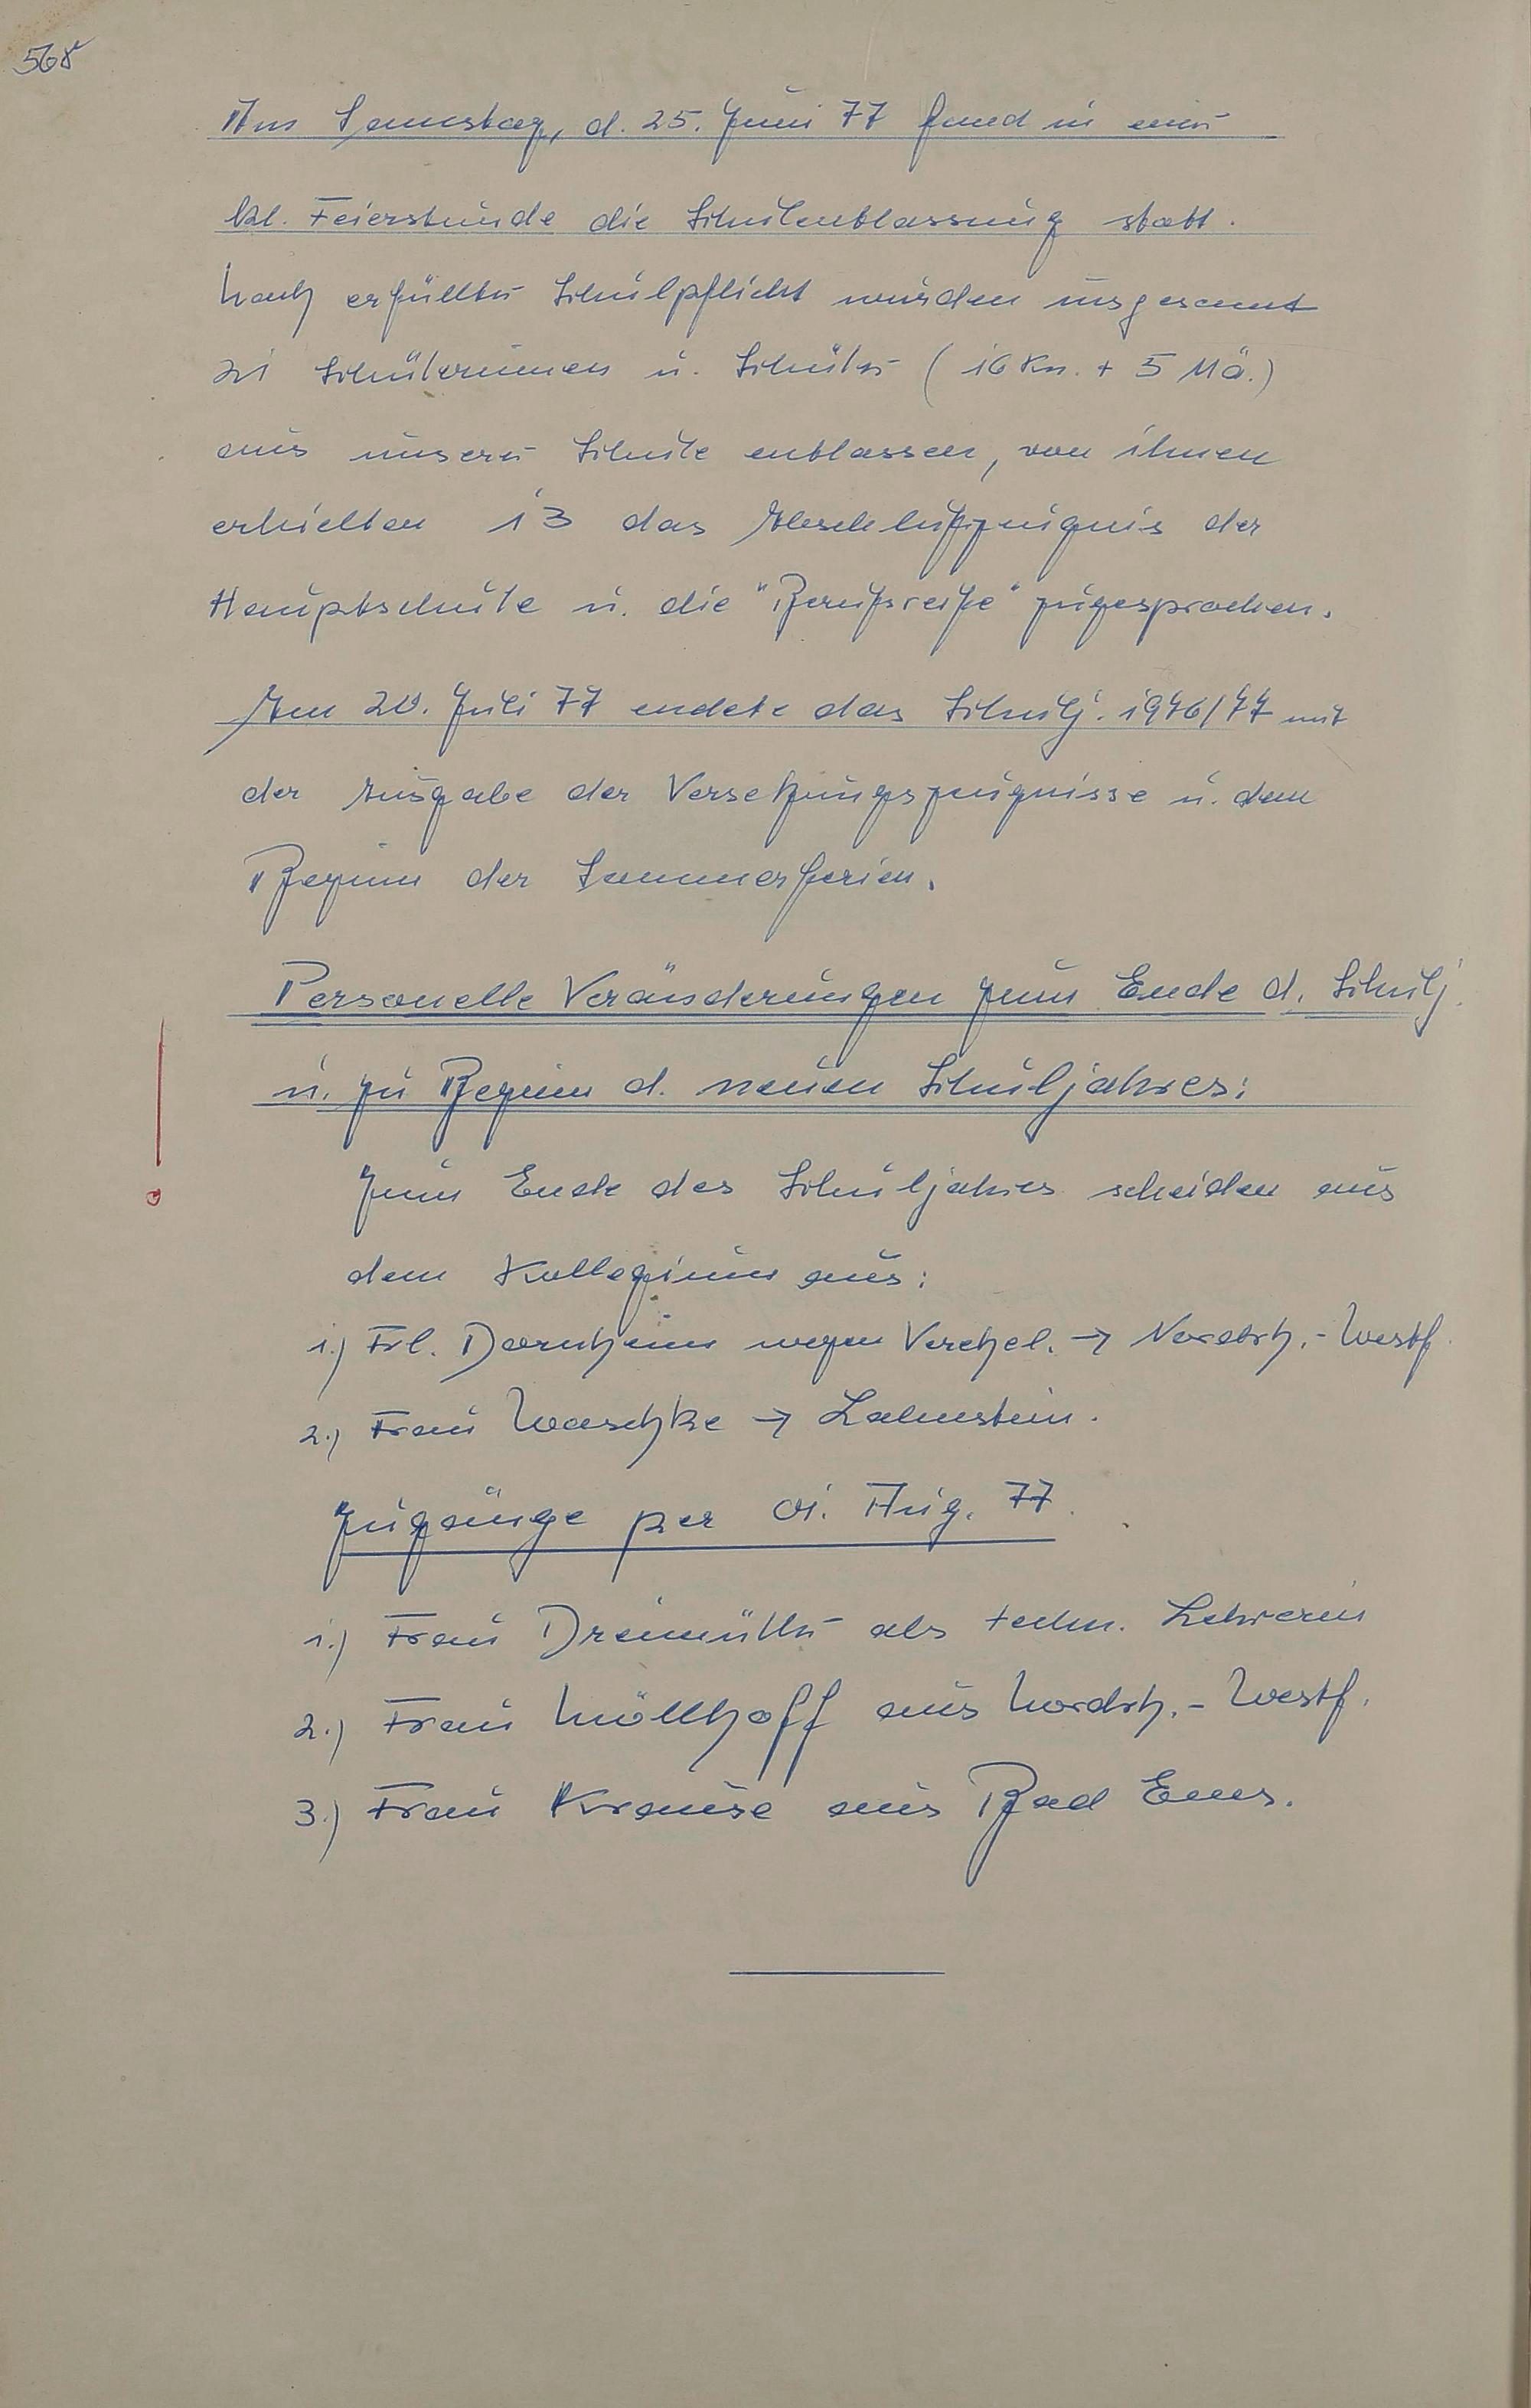 568
Am Samstag, d. 25. Juni 77 fand in einer
kl. Feierstunde die Schulentlassung statt.
Nach erfüllter Schulpflicht wurden insgesamt
21 Schülerinnen u. Schüler (16 Kn. + 5 Mä.)
aus unserer Schule entlassen, von ihnen
erhielten 13 das Abschlußzeugnis der
Hauptschule u. die "Berufsreife" zugesprochen.
Am 20. Juli 77 endete das Schulj. 1976/77 mit
der Ausgabe der Versetzungszeugnisse u. dem
Beginn der Sommerferien.
Personelle Veränderungen zum Ende d. Schulj.
u. zu Beginn d. neuen Schuljahres:
Zum Ende des Schuljahres scheiden aus
dem Kollegium aus:
1.) Frl. Dornheim wegen Verehel. → Nordrh.-Westf.
2.) Frau Waschke → Lahnstein.
Zugänge per 01. Aug. 77.
1.) Frau Dreimüller als techn. Lehrerin
2.) Frau Möllhoff aus Nordrh.-Westf.
3.) Frau Krause aus Bad Ems.